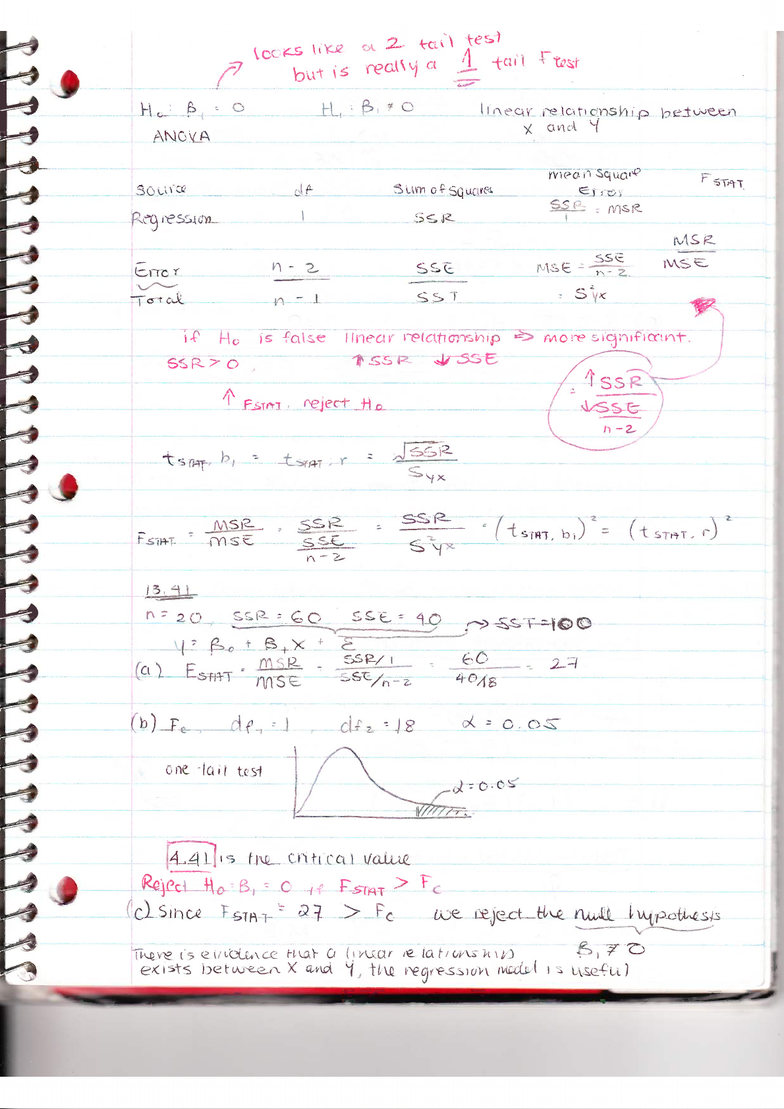 looks like a 2 tail test
but is really a 1 tail F test
H₀: β₁ = 0 H₁: β₁ ≠ 0 linear relationship between
X and Y
ANOVA
Source df Sum of Squares Mean Square Error FSTAT
Regression 1 SSR SSR/1 = MSR
Error n-2 SSE MSE = SSE/n-2 MSR/MSE
Total n-1 SST = S²yx
if H₀ is false linear relationship ⇒ more significant.
SSR > 0 ↑SSR ↓SSE
= ↑SSR / ↓SSE/n-2
↑ FSTAT. reject H₀
tSTAT, b₁ = tSTAT, r = √SSR / Syx
FSTAT = MSR/MSE = SSR / SSE/n-2 = SSR / S²yx = (tSTAT, b₁)² = (tSTAT, r)²
13.41
n = 20, SSR = 60 SSE = 40 → SST = 100
y = β₀ + β₁X + ε
(a) FSTAT = MSR/MSE = SSR/1 / SSE/n-2 = 60 / 40/18 = 27
(b) Fc, df₁ = 1, df₂ = 18 α = 0.05
one tail test
α = 0.05
4.41 is the critical value
Reject H₀: β₁ = 0 if FSTAT > Fc
(c) Since FSTAT = 27 > Fc we reject the null hypothesis
β₁ ≠ 0
There is evidence that a linear relationship
exists between X and Y, the regression model is useful